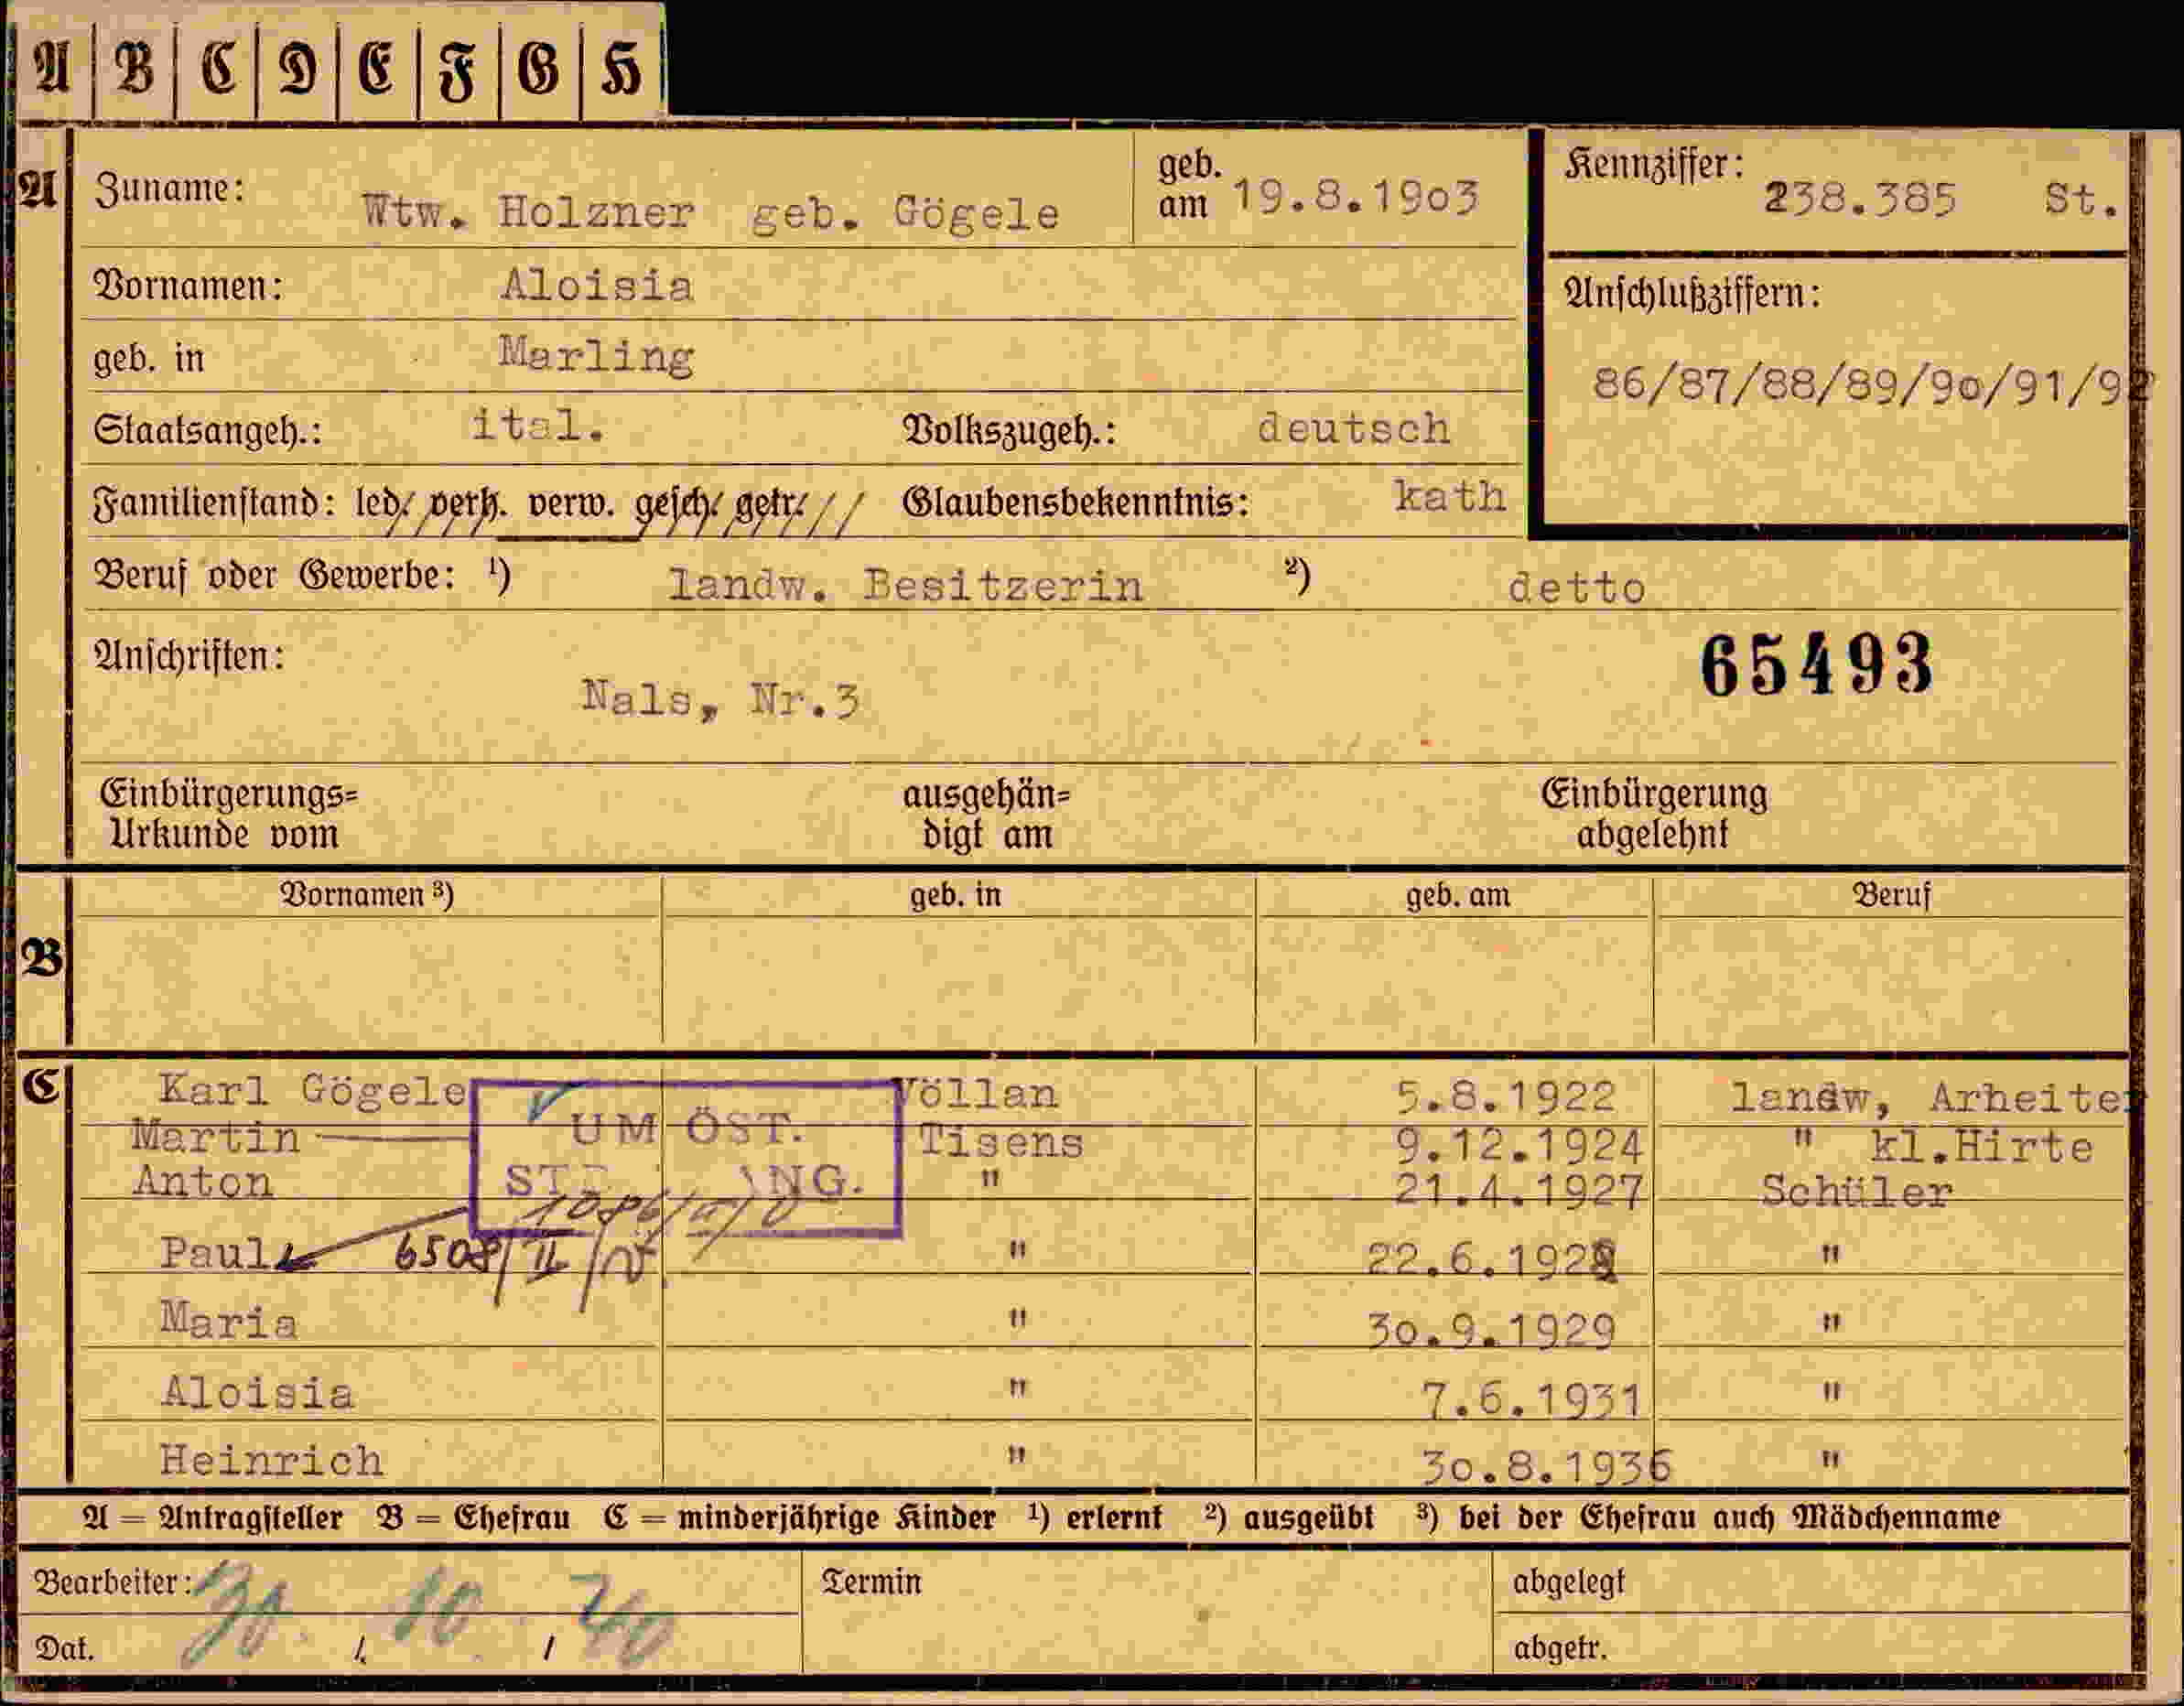 A B C D E F G H
A Zuname: Wtw. Holzner geb. Gögele geb. am 19.8.1903 Kennziffer: 238.385 St.
Vornamen: Aloisia Anschlußziffern:
geb. in Marling 86/87/88/89/90/91/92
Staatsangeh.: ital. Volkszugeh.: deutsch
Familienstand: led. verh. verw. gesch. getr. Glaubensbekenntnis: kath
Beruf oder Gewerbe: ¹) landw. Besitzerin ²) detto
Anschriften: 65493
Nals, Nr.3
Einbürgerungs= ausgehän= Einbürgerung
Urkunde vom digt am abgelehnt
Vornamen ³) geb. in geb. am Beruf
B
C Karl Gögele Völlan 5.8.1922 landw, Arheiter
UM ÖST.
Martin Tisens 9.12.1924 " kl.Hirte
Anton " 21.4.1927 Schüler
NG.
Paul 6508/II " 22.6.1928 "
Maria " 30.9.1929 "
Aloisia " 7.6.1931 "
Heinrich " 30.8.1936 "
A = Antragsteller B = Ehefrau C = minderjährige Kinder ¹) erlernt ²) ausgeübt ³) bei der Ehefrau auch Mädchenname
Bearbeiter: Termin abgelegt
30. 10. 40
Dat. abgetr.